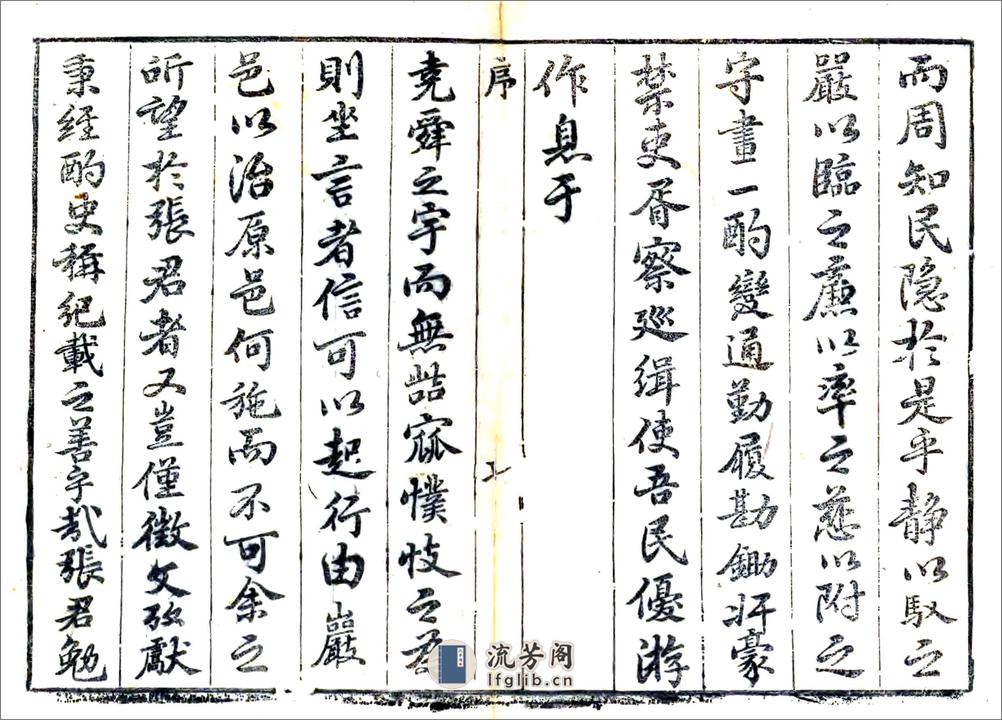 而周知民隐於是乎静以馭之
嚴以臨之廉以率之慈以附之
守畫一酌變通勤履勘鋤奸豪
禁吏胥察巡緝使吾民優游
作息于
序
堯舜之宇而無呰窳懻忮之
則坐言者信可以起行由巖
邑以治原邑何施而不可余之
所望於張君者又豈僅徵文攷獻
秉經酌史稱紀載之善乎哉張君勉
流芳阁
lfglib.cn